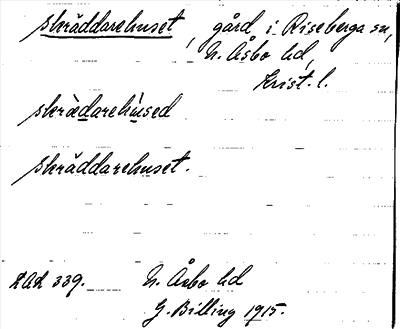 skräddarehuset, gård i Riseberga sn,
N. Åsbo hd,
Krist. l.
skrædarehused
skräddarehuset.
N. Åsbo hd
G. Billing 1915.